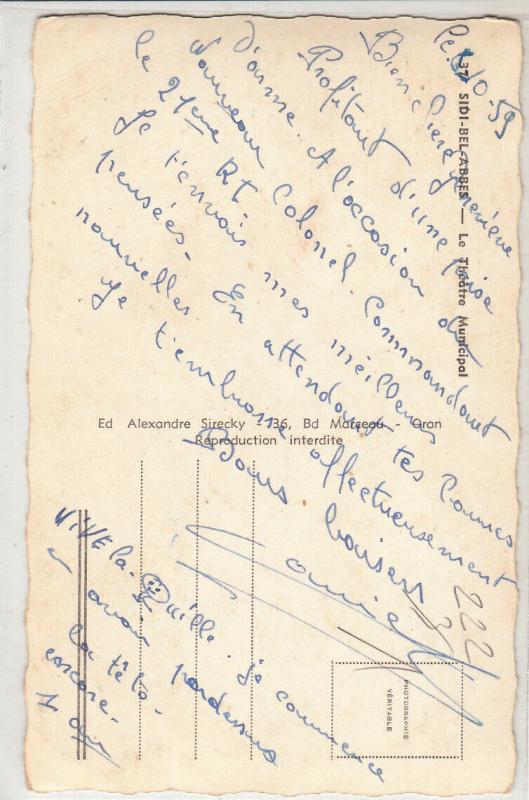 37 SIDI-BEL-ABBÈS — Le Théâtre Municipal
le 5/10.59
Bien chère Geneviève
Profitant d'une prise
d'arme. A l'occasion du
nouveau Colonel. Commandant
le 2ème RE
Je t'envois mes meilleures
pensées. En attendant tes bonnes
nouvelles
Je t'embrasse affectueusement
Doux baisers
Ed Alexandre Sirecky - 36, Bd Marceau - Oran
Reproduction interdite
ViVE la Quille. je commence
a avoir pardessus
la tête.
encore
222
PHOTOGRAPHIE
VÉRITABLE